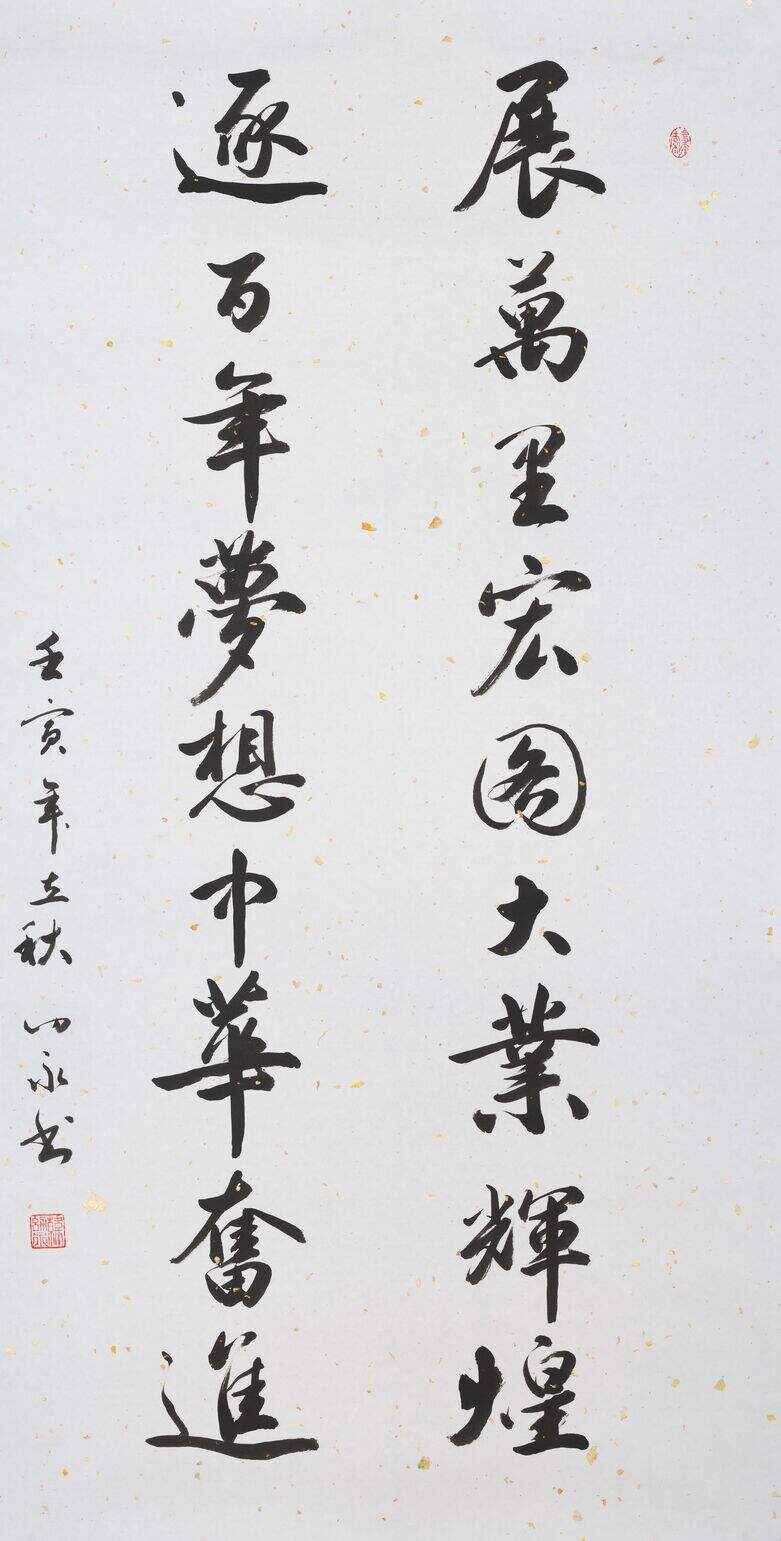 展萬里宏图大業輝煌
逐百年夢想中華奮進
壬寅年立秋 永书